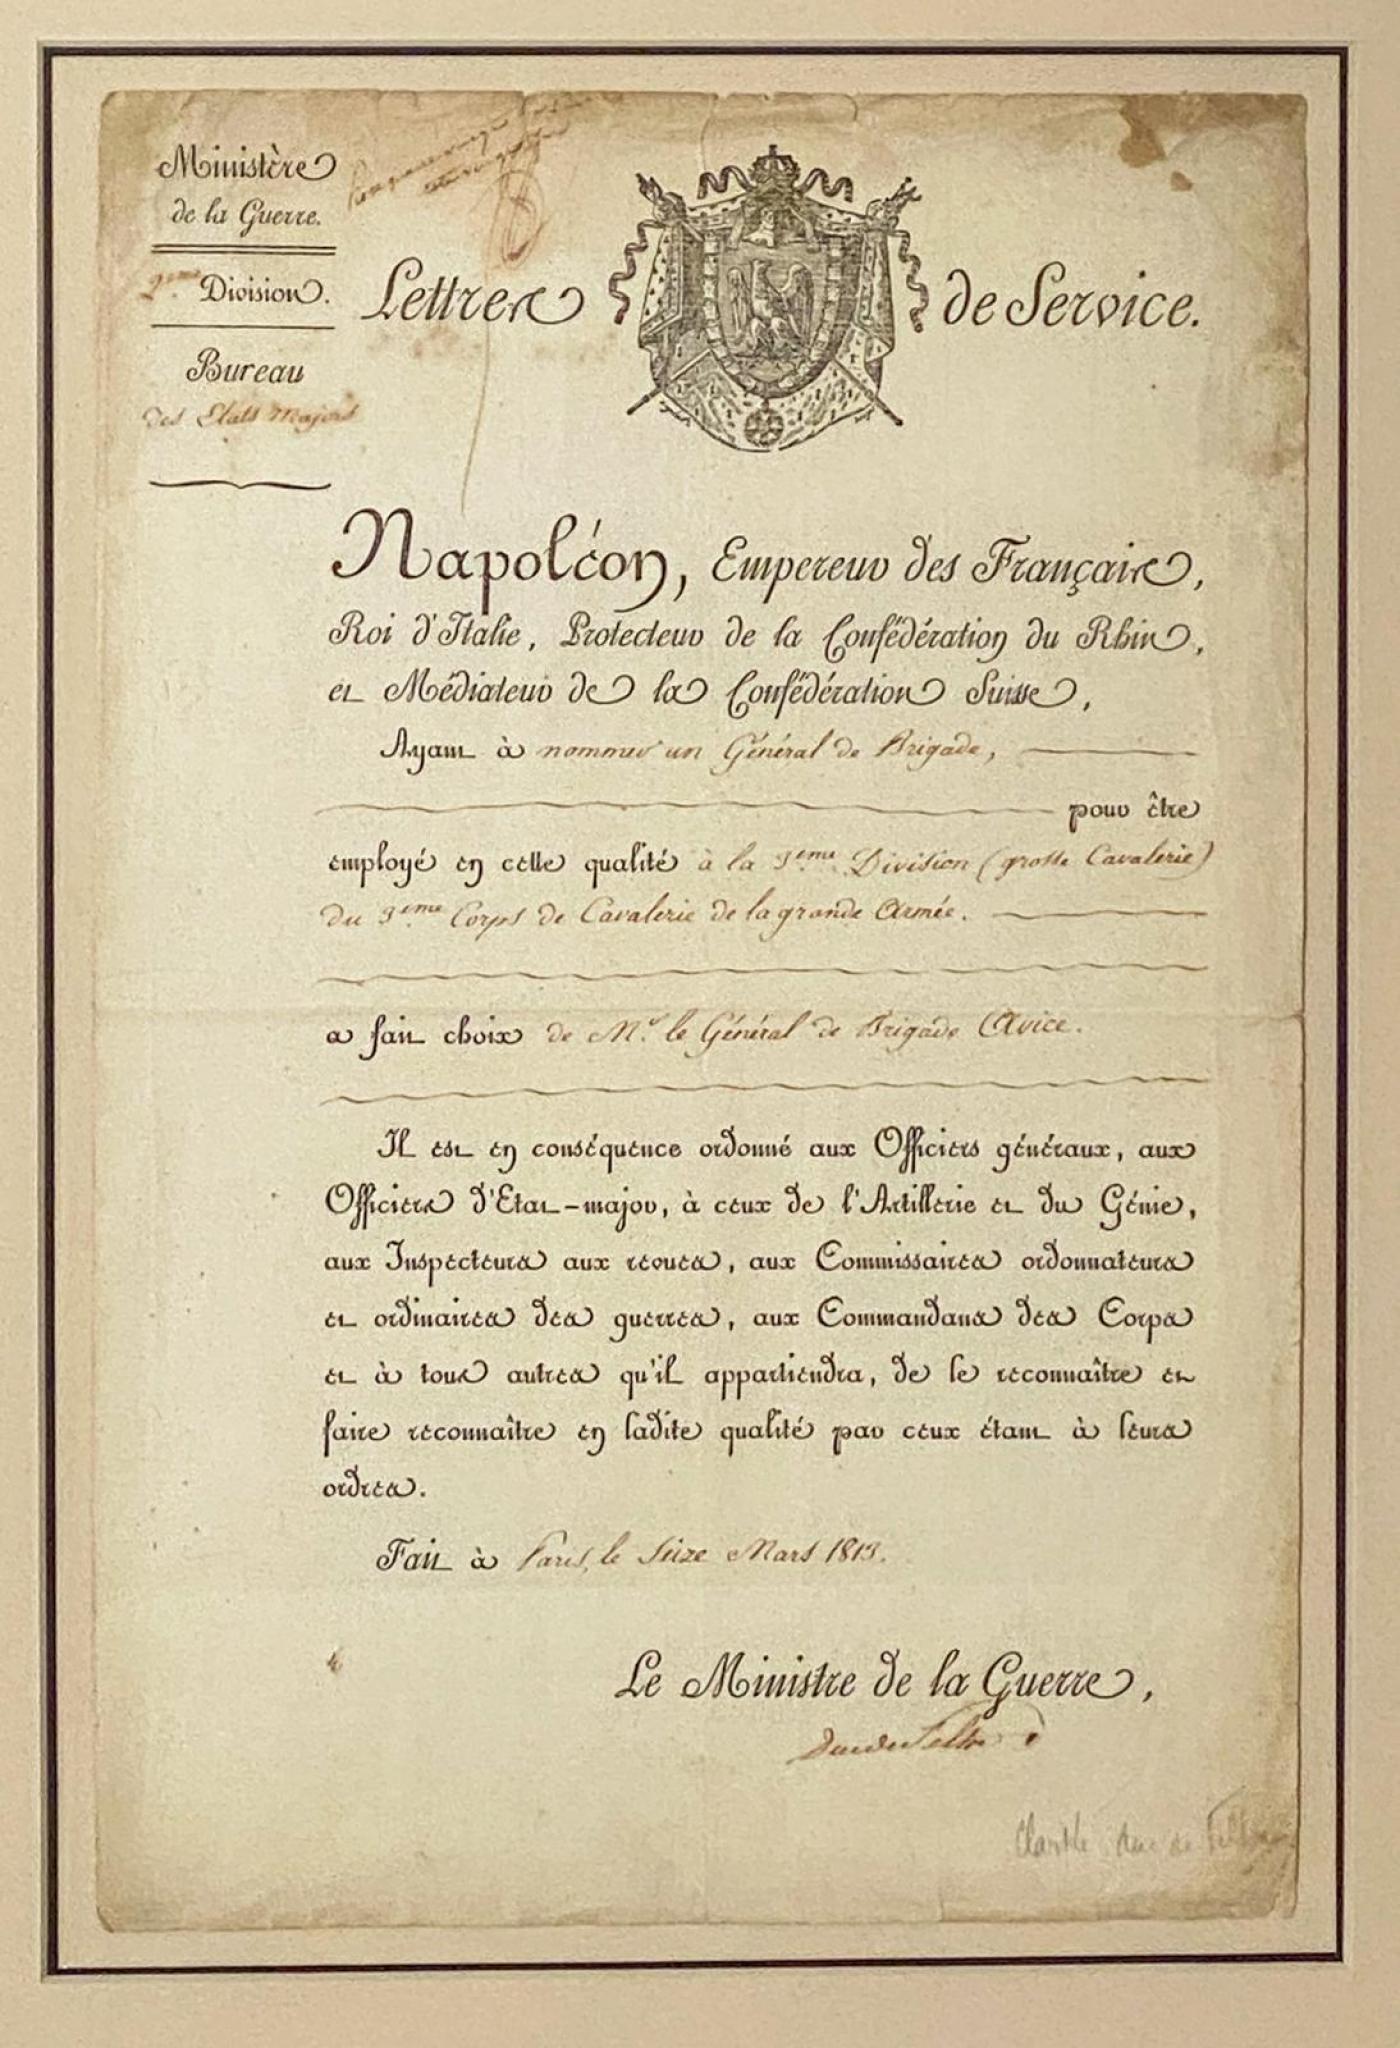 Ministère
de la Guerre.
2eme Division.
Bureau
des Etats Majors
Lettres de Service.
Napoléon, Empereur des Français,
Roi d'Italie, Protecteur de la Confédération du Rhin,
et Médiateur de la Confédération Suisse,
Ayant à nommer un Général de Brigade,
pour être
employé en cette qualité à la 3eme Division (grosse Cavalerie)
du 3eme Corps de Cavalerie de la grande Armée.
a fait choix de Mr. le Général de Brigade Avice.
Il est en conséquence ordonné aux Officiers généraux, aux
Officiers d'Etat-major, à ceux de l'Artillerie et du Génie,
aux Inspecteurs aux revues, aux Commissaires ordonnateurs
et ordinaires des guerres, aux Commandans des Corps
et à tous autres qu'il appartiendra, de le reconnaître et
faire reconnaître en ladite qualité par ceux étant à leurs
ordres.
Fait à Paris, le Seize Mars 1813.
Le Ministre de la Guerre,
Duc de Feltre
Clarke duc de Feltre